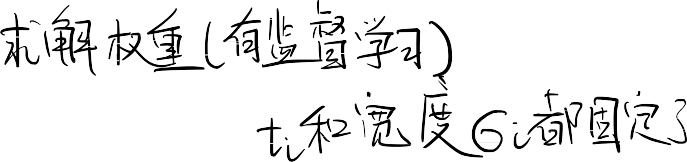 求解权重(有监督学习)
t_i和宽度σ_i都固定了